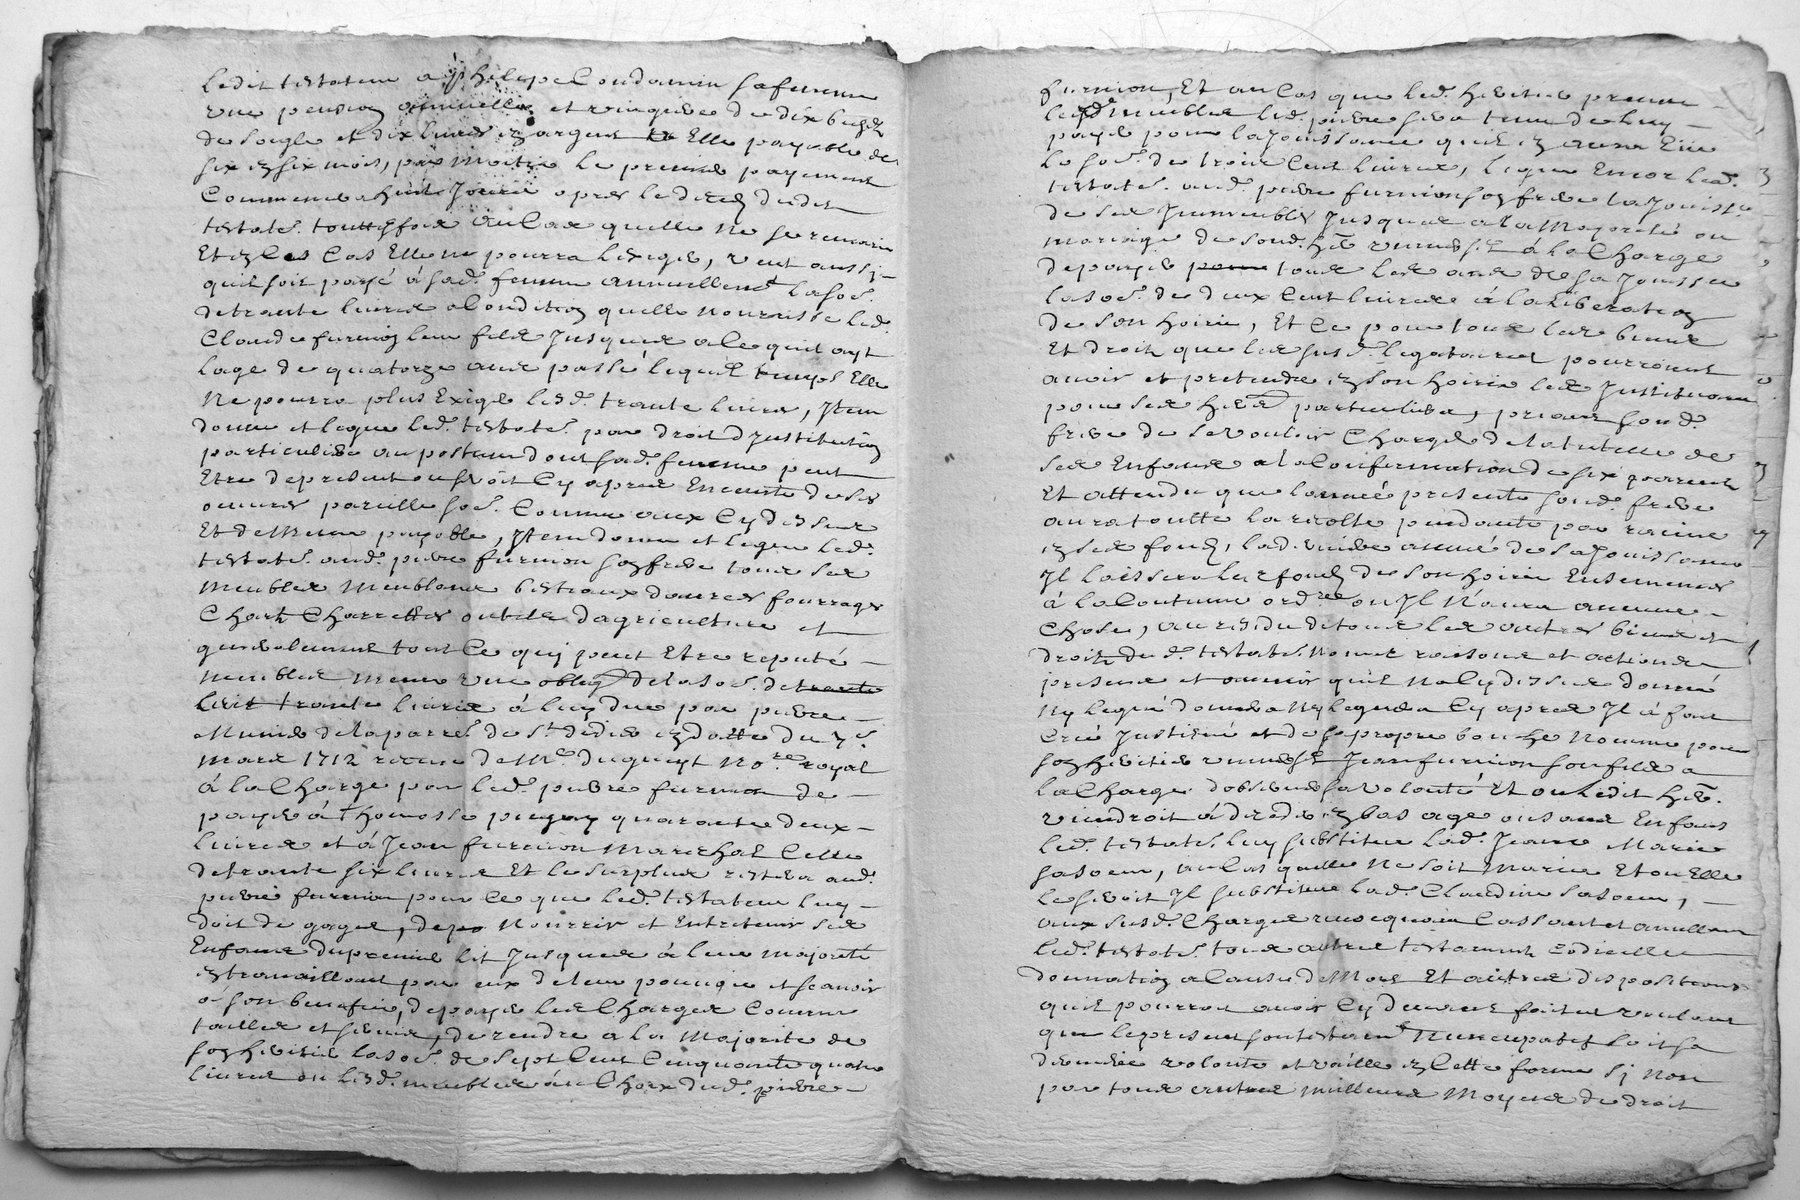 Ledit testateur a philipe Condamin sa femme
une pension annuelle et viagere de dix bichetz
de seigle et dix livres en argent Elle payable de
six en six mois, par moitie le premier payement
Commencera huit Jours apres le deces dudit
testatr. touttesfois au Cas quelle ne se remarie
Et en les Cas Elle ne pourra lexiger, veut aussi
quil soit payé á sad. femme annuellemt la soe.
de trante livres a Condition quelle nourrisse led.
Claude furnion leur fils Jusques a ce quil ayt
lage de quatorze ans passé lequel temps Elle
Ne pourra plus Exiger lesd. trante livres, Item
donne et legue led. testatr. par droit dInstitution
particuliere au postume dont sad. femme peut
Etre de present ou seroit Cy apres Enceinte de ses
oeuvres pareille soe. Comme aux Cy dessus
Et de Mesme payable, Item donne et legue led.
testatr. aud. pierre furnion son frere tous ses
meubles meublans bestiaux danrees fourrages
Chars Charrettes outils dagriculture et
generalement tout Ce qui peut Etre reputé
meubles mesme une oblign de la soe. de trante
livres á luy due par pierre
de la parre. de St. didier en datte du 7e.
mars 1712 receue de Me. duguyt Nore. royal
á la Charge par led. pierre furnion de
payer á Thomasse quarante deux
livres et á Jean furnion Marechal Celle
de trante six livres Et le surplus restera aud.
pierre furnion pour Ce que led. testateur luy
doit de gages, de Nourrir et Entretenir ses
Enfans du premier lit Jusques á leur majorité
en travaillant par eux de leur pouvoir et scavoir
á son benefice, de payer les Charges Comme
tailles et servis, de rendre a la Majorité de
son heritier la soe. de sept Cent Cinquante quatre
livres ou lesd. meubles áu Choix dud. pierre
furnion, Et au Cas que led. heritier prenne
lesd. meubles led. pierre sera tenu de luy
payer pour la Jouissance quil en aura Eue
la soe. de trois Cent livres, legue Encor led.
testatr. aud. pierre furnion son frere la Jouissce.
de ses Immeubles Jusques a la Majorité ou
mariage de sond. her. univer. Et á la Charge
de payer tous les ans de sa Jouissce
la soe. de deux Cent livres á la liberation
de son hoirie, Et Ce pour tous les biens
Et droits que les susd. legataires pourroient
avoir et pretendre en son hoirie les Instituant
pour ses hers particuliers, priant sond.
frere de se vouloir Charger de la tutelle de
ses Enfans a la Confirmation de six parents
Et attendu que lannée presente sond. frere
aura toutte la recolte pendante par racine
en ses fonds, lad. année de sa Jouissance
Il laissera les fonds de son hoirie Ensemencés
á la Coutume ordre ou Il Naura aucune
Chose, au residu de tous les autres biens et
droits dud. testatr. Noms raisons et actions
presens et avenir quil Na Cy dessus donné
Ny legué donnera Ny leguera Cy apres Il á fait
Créé Institué et de sa propre bouche Nommé pour
son heritier universel Jean furnion son fils a
la Charge dobserver sa volonté Et ou ledit her.
viendroit á deceder en bas age ou sans Enfans
led. testatr. luy substitue lad. Jeane Marie
sa soeur, au Cas quelle Ne soit Mariée Et ou Elle
le seroit Il substitue lad. Claudine sa soeur,
aux susd. Charges revocquan Cassant et annullant
led. testatr. tous autres testaments Codicilles
donnation a Cause de Mort Et autres dispositions
quil pourroit avoir Cy devant faites voulant
que le present son testamt Nuncupatif soit sa
derniere volonté et vaille en Cette forme si non
par tous autres meilleurs Moyens de droit